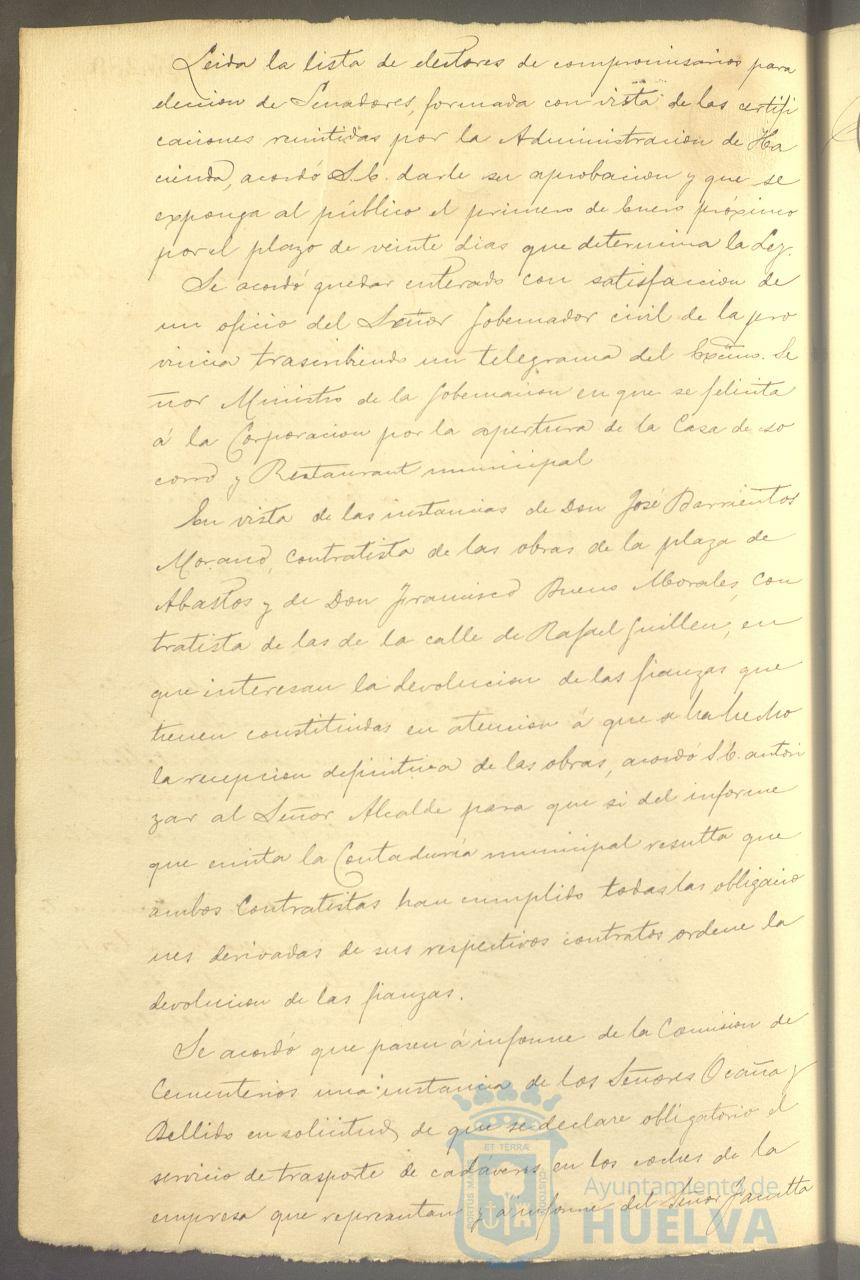 Leida la lista de electores de compromisarios para
eleccion de Senadores, formada con vista de las certifi
caciones remitidas por la Administracion de Ha
cienda, acordó S.E. darle su aprobacion y que se
exponga al público el primero de Enero próximo
por el plazo de veinte dias que determina la Ley.
Se acordó quedar enterado con satisfaccion de
un oficio del Señor Gobernador civil de la pro
vincia trascribiendo un telegrama del Excmo. Se
ñor Ministro de la Gobernacion en que se felicita
á la Corporacion por la apertura de la Casa de so
corro y Restaurant municipal
En vista de las instancias de Don José Barrientos
Morano, contratista de las obras de la plaza de
Abastos y de Don Francisco Bueno Morales, con
tratista de las de la calle de Rafael Guillen, en
que interesan la devolucion de las fianzas que
tienen constituidas en atencion á que se ha hecho
la recepcion definitiva de las obras, acordó S.E. autori
zar al Señor Alcalde para que si del informe
que emita la Contaduría municipal resulta que
ambos Contratistas han cumplido todas las obligacio
nes derivadas de sus respectivos contratos ordene la
devolucion de las fianzas.
Se acordó que pasen á informe de la Comision de
Cementerios una instancia de los Señores Ocaña y
Bellido en solicitud de que se declare obligatorio el
servicio de trasporte de cadáveres en los coches de la
empresa que representan y á informe del Señor
PORTUS MARIS ET TERRÆ CUSTODIA
Ayuntamiento de
HUELVA